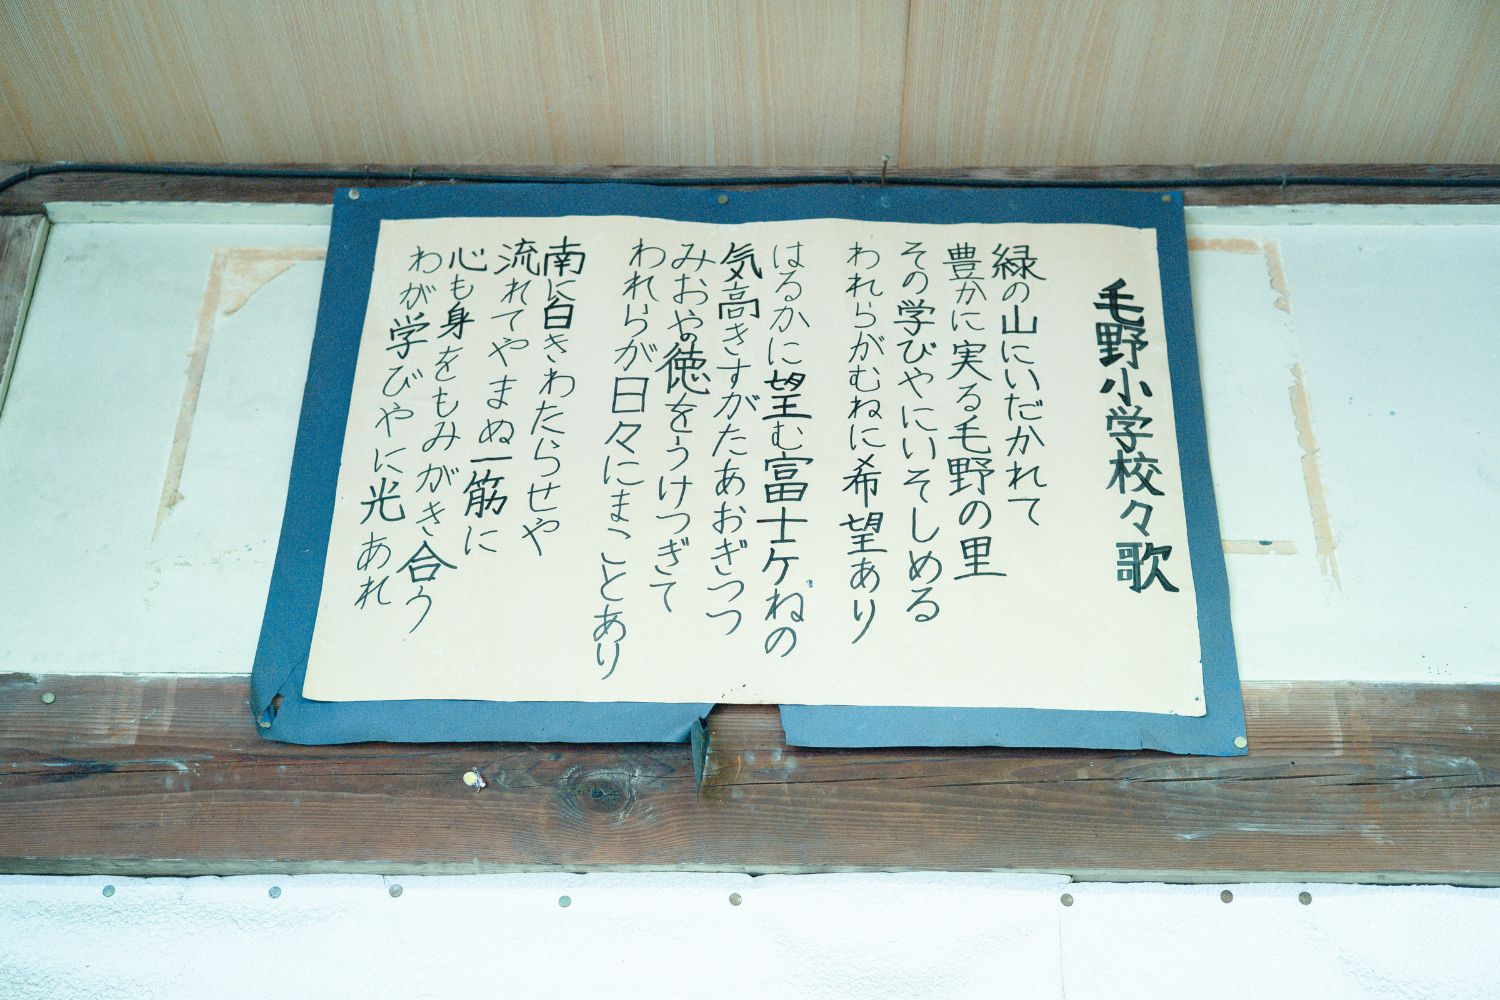 毛野小学校々歌
緑の山にいだかれて
豊かに実る毛野の里
その学びやにいそしめる
われらがむねに希望あり
はるかに望む富士ケねの
気高きすがたあおぎつつ
みおやの徳をうけつぎて
われらが日々にまことあり
南に白きわたらせや
流れてやまぬ一筋に
心も身をもみがき合う
わが学びやに光あれ